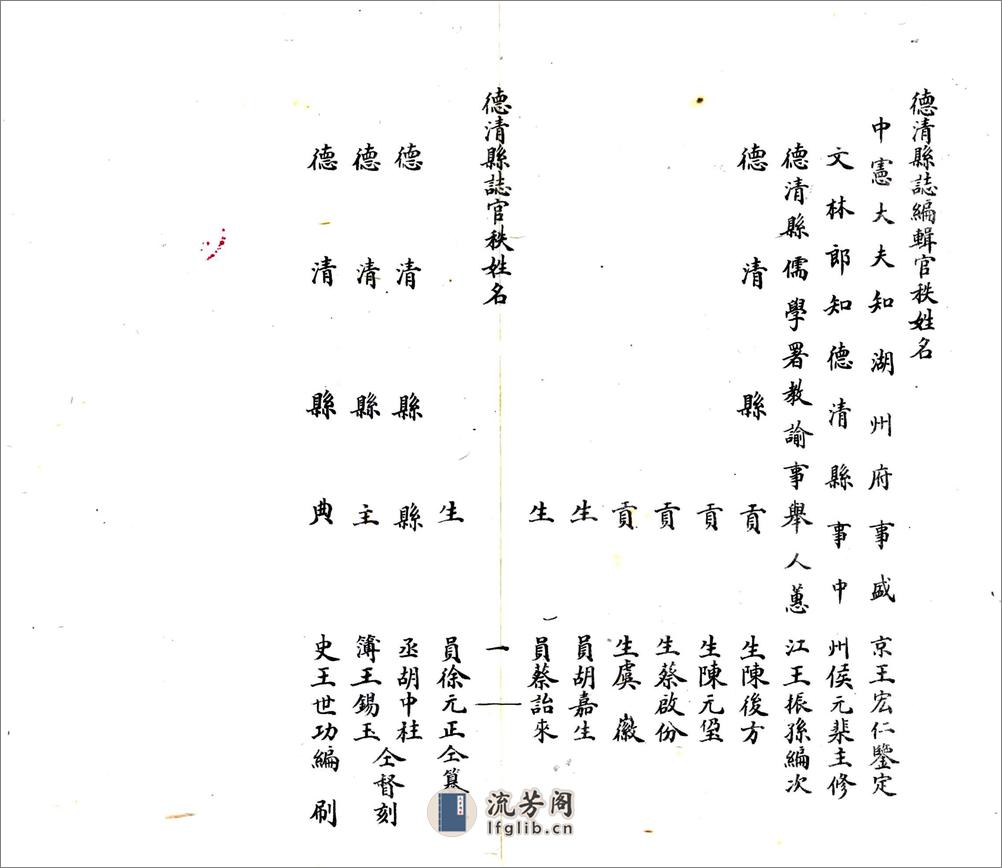 德清縣誌編輯官秩姓名
中憲大夫知湖州府事盛京王宏仁鑒定
文林郎知德清縣事中州侯元棐主修
德清縣儒學署教諭事舉人蕙江王振孫編次
德清縣貢生陳後方
貢生陳元
貢生蔡啟份
貢生虞徽
生員胡嘉生
生員蔡詒來
德清縣誌官秩姓名
一
生員徐元正仝纂
德清縣縣丞胡中柱
德清縣主簿王錫玉
仝督刻
德清縣典史王世功編刷
流芳阁
lfglib.cn